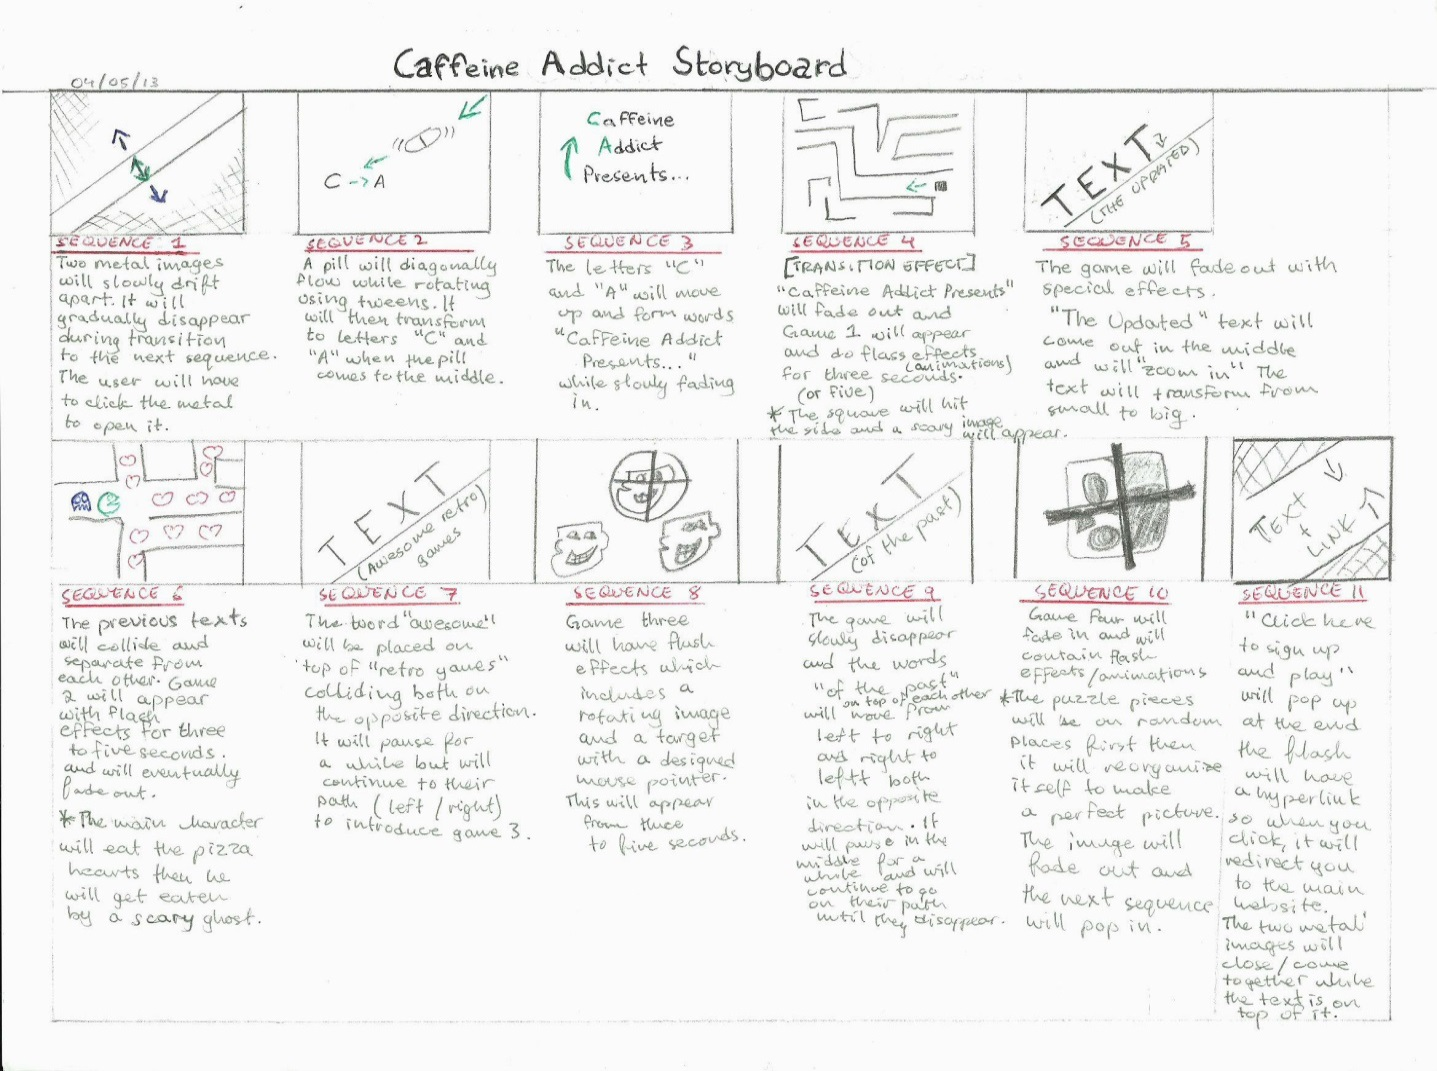 Caffeine Addict Storyboard
04/05/13
C -> A
Caffeine
Addict
Presents...
TEXT
(THE UPDATED)
SEQUENCE 1
Two metal images
will slowly drift
apart. It will
gradually disappear
during transition
to the next sequence.
The user will have
to click the metal
to open it.
SEQUENCE 2
A pill will diagonally
flow while rotating
using tweens. It
will then transform
to letters "C" and
"A" when the pill
comes to the middle.
SEQUENCE 3
The letters "C"
and "A" will move
up and form words
"Caffeine Addict
Presents..."
while slowly fading
in.
SEQUENCE 4
[TRANSITION EFFECT]
"Caffeine Addict Presents"
will fade out and
Game 1 will appear
and do flass effects
(animations)
for three seconds.
(or five)
* The square will hit
the side and a scary image
will appear.
SEQUENCE 5
The game will fade out with
special effects.
"The Updated" text will
come out in the middle
and will "zoom in" The
text will transform from
small to big.
TEXT
(Awesome retro)
games
TEXT
(of the past)
TEXT
+
LINK
SEQUENCE 6
The previous texts
will collide and
separate from
each other. Game
2 will appear
with flash
effects for three
to five seconds.
and will eventually
fade out.
* The main character
will eat the pizza
hearts then he
will get eaten
by a scary ghost.
SEQUENCE 7
The word "awesome"
will be placed on
top of "retro games"
colliding both on
the opposite direction.
It will pause for
a while but will
continue to their
path (left / right)
to introduce game 3.
SEQUENCE 8
Game three
will have flash
effects which
includes a
rotating image
and a target
with a designed
mouse pointer.
This will appear
from three
to five seconds.
SEQUENCE 9
The game will
slowly disappear
and the words
"of the past"
on top of each other
will move from
left to right
and right to
leftt both
in the opposite
direction. It
will pause in the
middle for a
while and will
continue to go
on their path
until they disappear.
SEQUENCE 10
Game four will
fade in and will
contain flash
effects/animations
* The puzzle pieces
will be on random
places first then
it will reorganize
itself to make
a perfect picture.
The image will
fade out and
the next sequence
will pop in.
SEQUENCE 11
"Click here
to sign up
and play"
will pop up
at the end
the flash
will have
a hyperlink
so when you
click, it will
redirect you
to the main
website.
The two metal
images will
close / come
together while
the text is on
top of it.